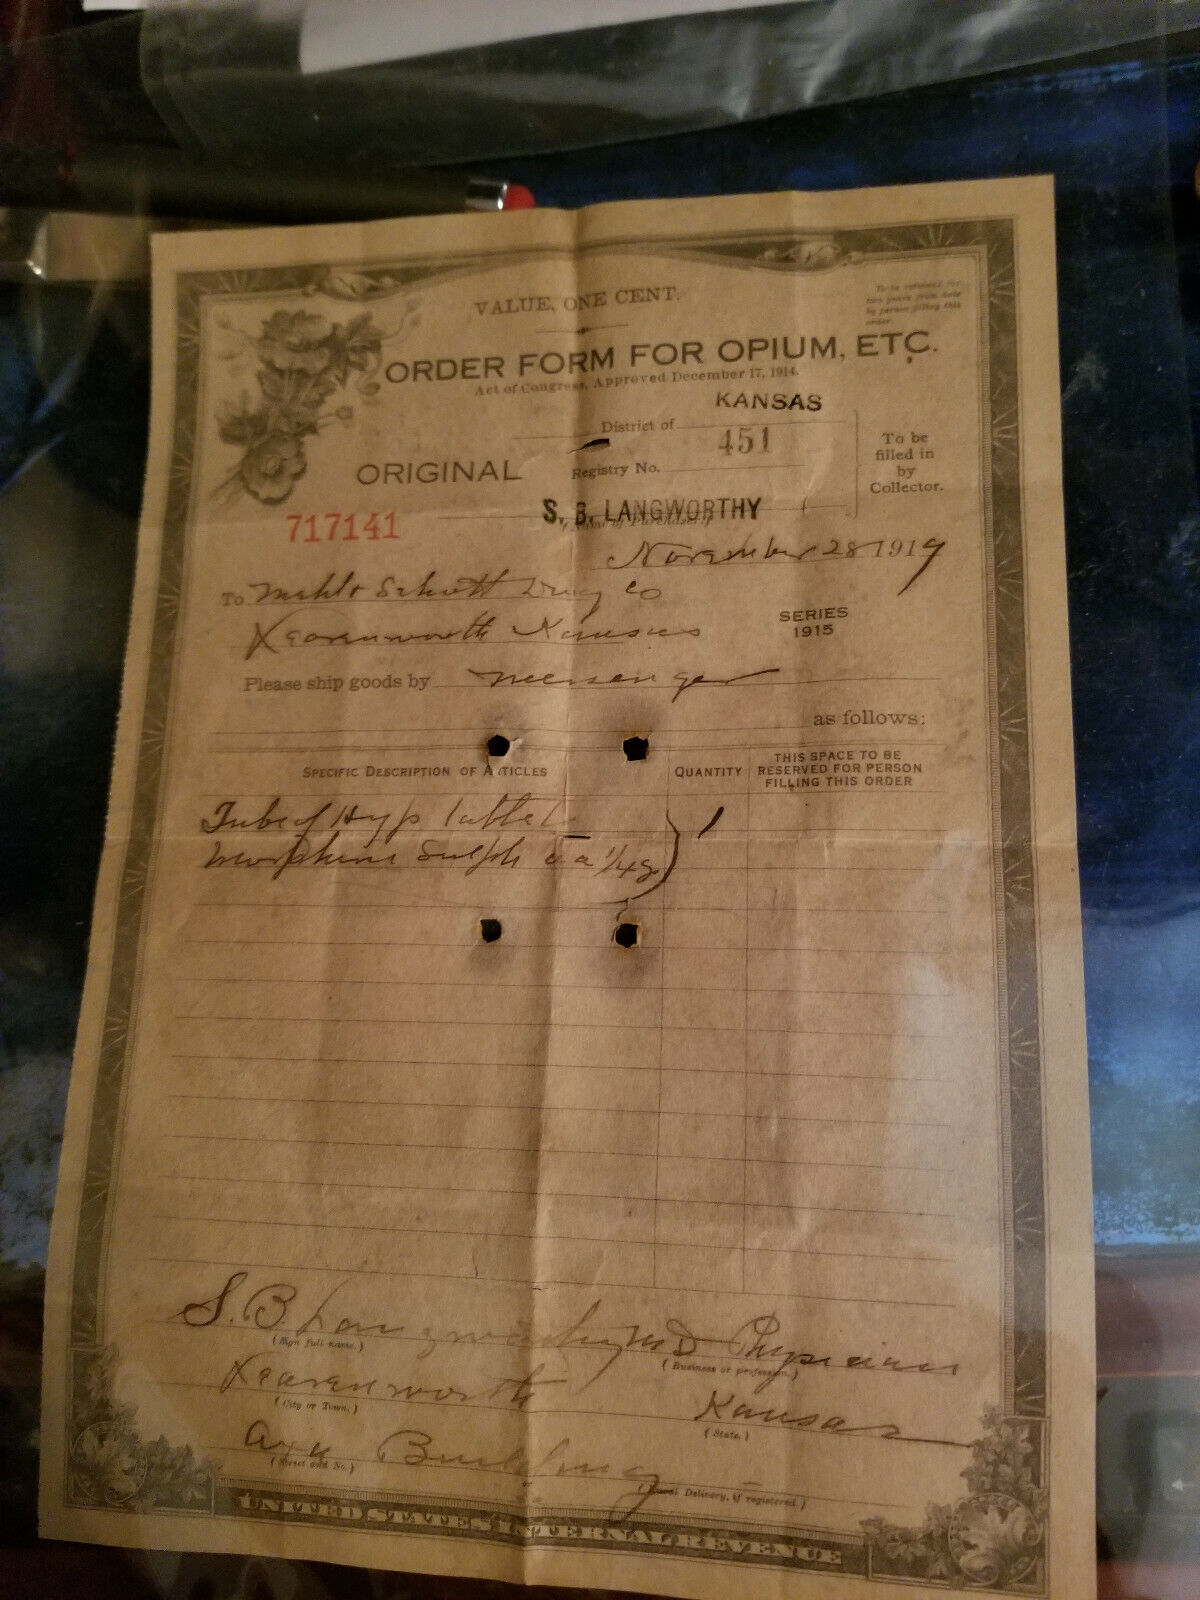 VALUE, ONE CENT.
To be retained for
two years from date
by person filling this
order.
ORDER FORM FOR OPIUM, ETC.
Act of Congress, Approved December 17, 1914.
District of KANSAS
ORIGINAL
Registry No. 451
To be
filled in
by
Collector.
S. B. LANGWORTHY
(Name of Purchaser.)
717141
November 28 1919
To Schott Drug Co
Leavenworth Kansas
SERIES
1915
Please ship goods by messenger
as follows:
SPECIFIC DESCRIPTION OF ARTICLES
QUANTITY
THIS SPACE TO BE
RESERVED FOR PERSON
FILLING THIS ORDER
Tube of Hyp tablets 1
Morphine Sulph aa 1/4 g
S. B. Langworthy MD Physician
(Sign full name.) (Business or profession.)
Leavenworth Kansas
(City or Town.) (State.)
Building
(Street and No.) (Rural Delivery, if registered.)
UNITED STATES INTERNAL REVENUE